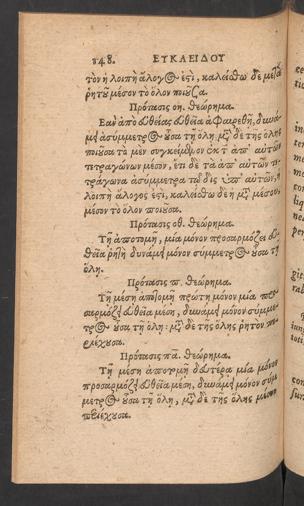 148. ΕΥΚΛΕΙΔΟΥ
τὸν ἡ λοιπὴ ἄλογος ἐςὶ, καλείσθω δὲ μεζὰ
ῥητοῦ μέσον τὸ ὅλον ποιοῦσα.
Πρότασις οη. θεώρημα.
Εὰν ἀπὸ εὐθείας εὐθεῖα ἀφαιρεθῇ, δυνά-
μει ἀσύμμετρος οὖσα τῇ ὅλῃ. μτ δὲ τῆς ὅλης
ποιοῦσα τὸ μὲν συγκείμενον ἐκ τ ἀπ' αὐτῶν
τετραγώνων μέσον, ἔτι δὲ τὰ ἀπ' αὐτῶν τε-
τράγωνα ἀσύμμετρα τῷ δὶς ὑπ' αὐτῶν, ἡ
λοιπὴ ἄλογος ἐςὶ, καλείσθω δὲ ἡ μτ μέσου
μέσον τὸ ὅλον ποιοῦσα.
Πρότασις οθ. θεώρημα.
Τῇ ἀποτομῇ, μία μόνον προσαρμόζει εὐ-
θεῖα ῥητὴ δυνάμει μόνον σύμμετρος οὖσα τῇ
ὅλῃ.
Πρότασις π. θεώρημα.
Τῇ μέσῃ ἀποτομῇ πρώτῃ μόνον μία προσ-
αρμόζει εὐθεῖα μέση, δυνάμει μόνον σύμμε-
τρος οὖσα τῇ ὅλῃ: μτ δὲ τῆς ὅλης ῥητὸν πε-
ριέχουσα.
Πρότασις πα. θεώρημα.
Τῇ μέσῃ ἀποτομῇ δευτέρᾳ μία μόνον
προσαρμόζει εὐθεῖα μέση, δυνάμει μόνον σύμ-
μετρος οὖσα τῇ ὅλῃ, μτ δὲ τῆς ὅλης μέσον
περιέχουσα.